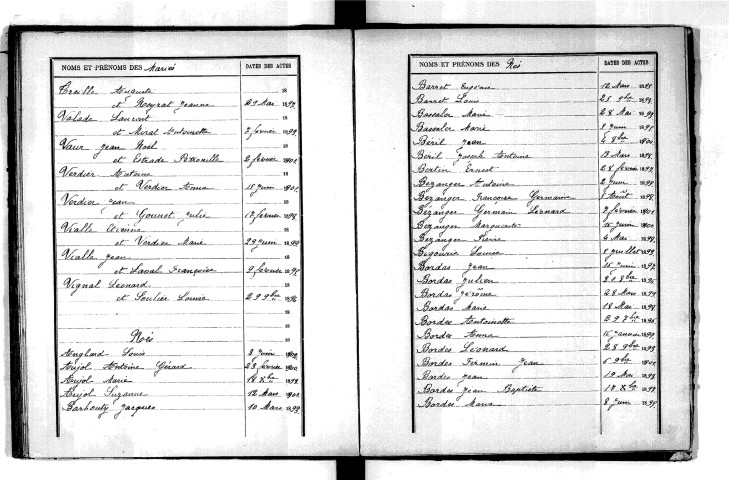 NOMS ET PRÉNOMS DES Mariés DATES DES ACTES
Treille Auguste 18
et Neyrat Jeanne 29 Mai 1899
Valade Laurent 18
et Mirat Antoinette 7 février 1899
Vaur Jean Noël 18
et Estrade Pétronille 2 février 1901
Verdier Antoine 18
et Verdier Anna 15 juin 1901
Verdier Jean 18
et Gounet Julie 12 février 1898
Vialle Etienne 18
et Verdier Marie 29 juin 1899
Vialle Jean 18
et Laval Françoise 9 février 1895
Vignal Léonard 18
et Soulier Louise 29 9bre 1896
18
18
Nés 18
Anglard Louis 8 juin 1902
Aujol Antoine Gérard 23 février 1900
Aujol Marie 18 Xbre 1898
Aujol Suzanne 12 Mars 1901
Barbouty Jacques 10 Mars 1899
NOMS ET PRÉNOMS DES Nés DATES DES ACTES
Barret Eugénie 12 Mars
Barret Louis 25 9bre
Bassaler Marie 28 Mai
Bassaler Marie 8 juin
Béril Jean 4 8bre 1900
Béril Joseph Antoine 13 Mars
Bertin Ernest 28 février
Bezanger Antoine 2 juin
Bezanger Françoise Germaine 8 Août
Bézanger Germain Léonard 7 février 1901
Bezanger Marguerite 15 juin 1900
Bezanger Pierre 4 Mai
Bigourie Louise juillet
Bordas Jean juin
Bordas Julien 31 8bre
Bordas Jérôme 28 Mars
Bordas Marie 18 Mai
Bordes Antoinette 29 7bre
Bordes Anna 15 janvier
Bordes Léonard 28 9bre
Bordes Firmin Jean 5 9bre
Bordes Jean 19 Mai
Bordes Jean Baptiste 17 Xbre
Bordes Maria 8 juin